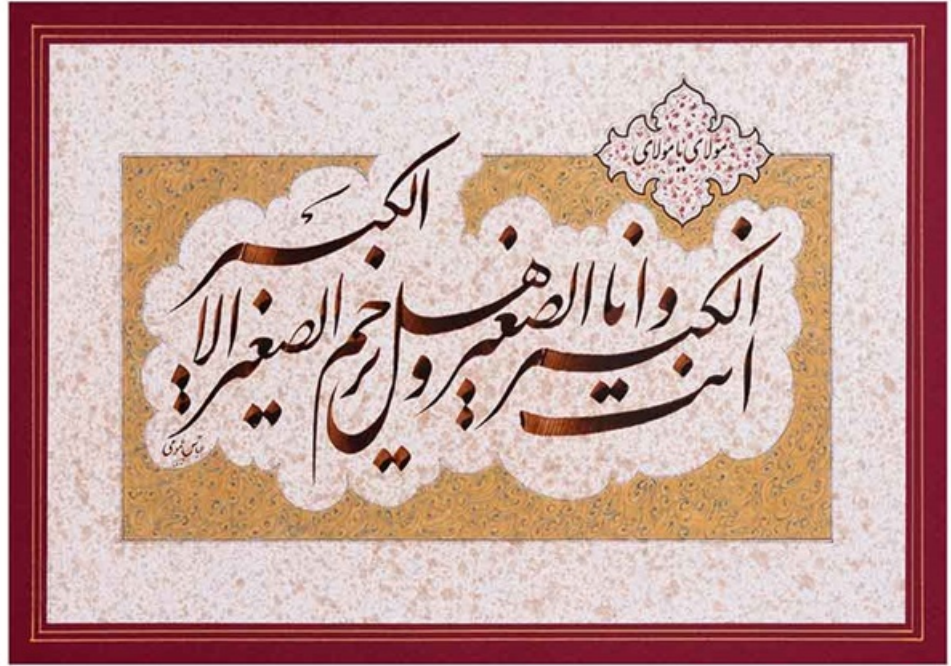 مولای یا مولای
انت الکبیر و انا الصغیر و هل یرحم الصغیر الا الکبیر